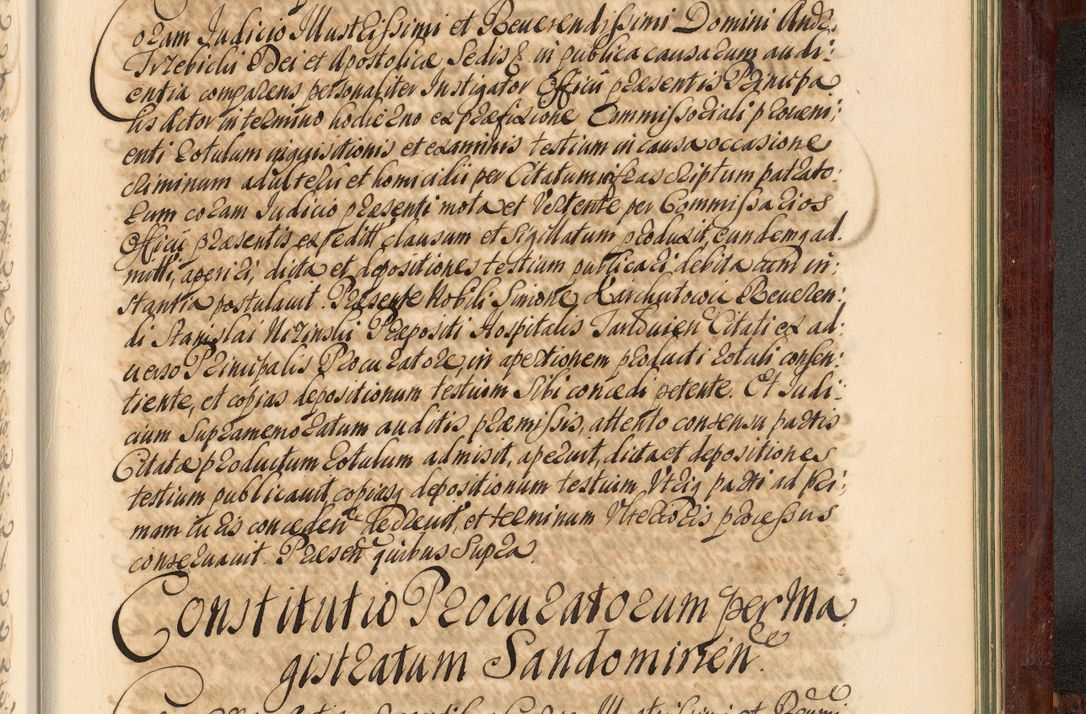 Coram Judicio Illustrissimi et Reverendissimi Domini Andr:
Trzebicki Dei et Apostolicæ Sedis & in publica causarum audi:
entia comparens personaliter Instigator Officii præsentis Principa
lis Actor in termino hodierno ex præfixione Commissoriali proveni:
enti Rotulum inquisitionis et examinis testium in causa occasione
criminum adulterii et homicidii per Citatum infrascriptum patrato:
rum coram Judicio præsenti mota et Vertente per Commissarios
Officii præsentis expeditt clausum et Sigillatum produxit, eundemq ad:
mitti, aperiri, dicta et depositiones testium publicari debita cum in:
stantia postulavit. Præsente Nobili Simone Reveren:
di Stanislai Præpositi Hospitalis Citati ex ad:
verso Principalis Procuratore, in apertionem producti rotuli consen:
tiente, et copias depositionum testium Sibi concedi petente. Et Judi:
cium Supramemoratum auditis præmissis, attento consensu partis
Citatæ productum rotulum admisit, aperuit, dicta et depositiones
testium publicavit, copiasq depositionum testium Utriq parti ad pri:
mam iuris conceden decrevit, et terminum Ulterioris processus
conservavit. Præsen quibus Supra.
Constitutio Procuratorum per Ma
gistratum Sandomirien.
Illustrissimi et Revmi